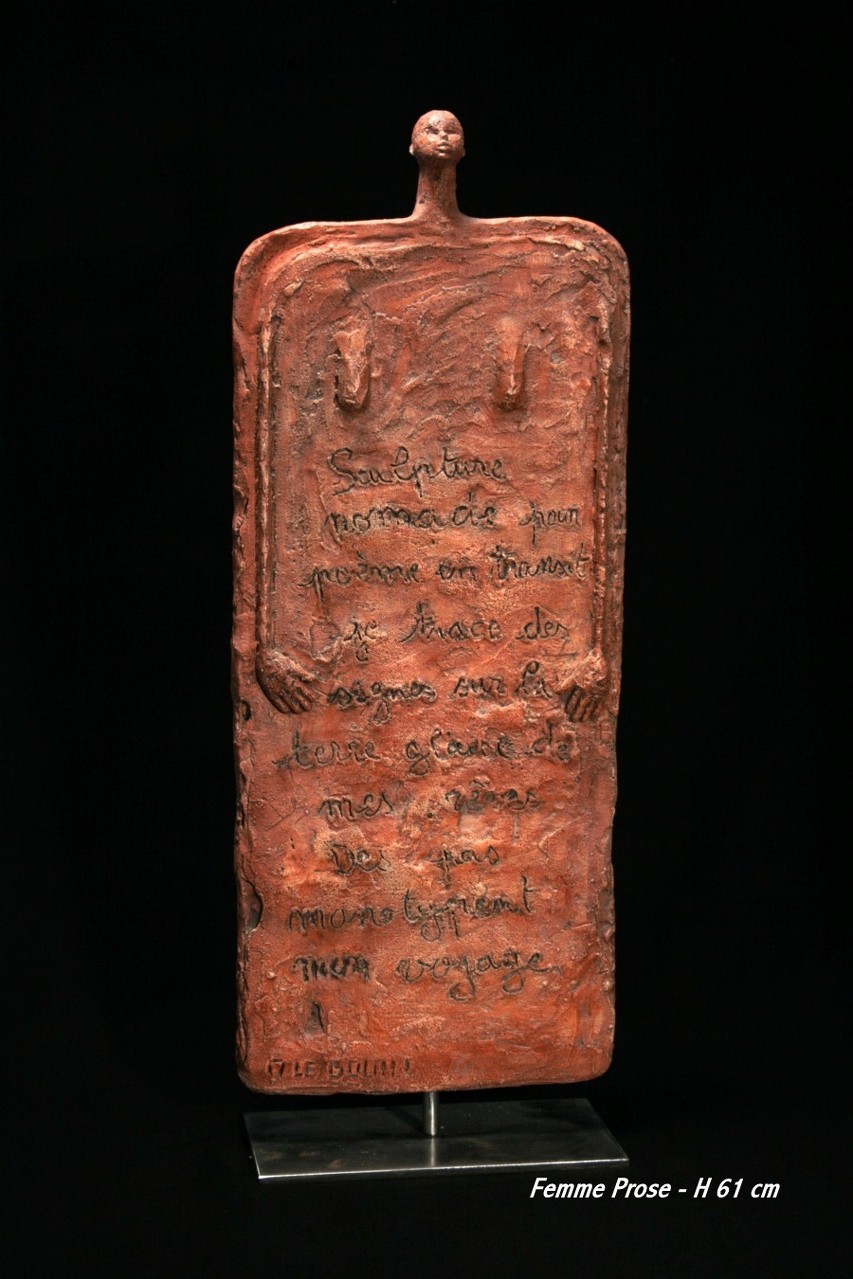 Sculpture
nomade pour
poème en transit
je trace des
signes sur la
terre glaise de
mes rêves
Des pas
monotypent
mon voyage.
LE
Femme Prose - H 61 cm